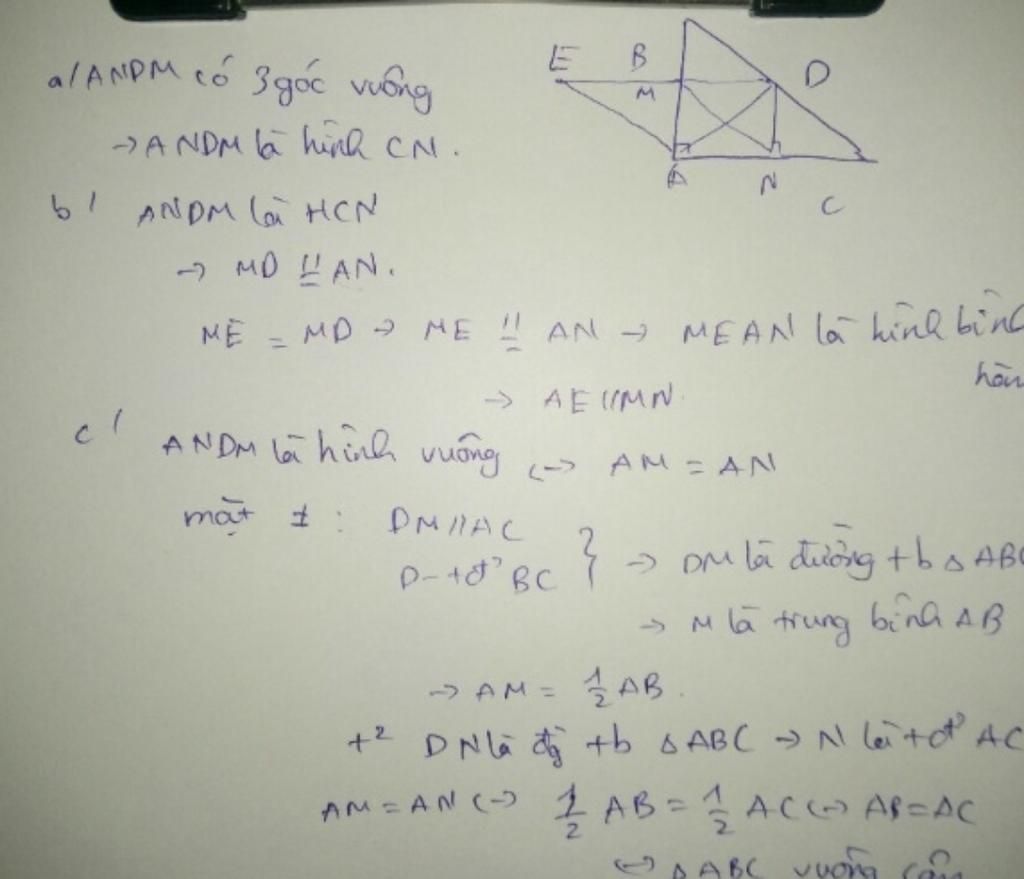 a/ ANDM có 3 góc vuông
→ ANDM là hình CN.
E B D
M
A N C
b/ ANDM là HCN
→ MD // = AN.
ME = MD → ME // = AN → MEAN là hình bình
hàn
→ AE // MN.
c/ ANDM là hình vuông <-> AM = AN
mặt ≠ : DM // AC
D - tđ² BC } → DM là đường tb Δ ABC
→ M là trung bình AB
→ AM = 1/2 AB.
t² DN là đg tb Δ ABC → N là tđ² AC
AM = AN <-> 1/2 AB = 1/2 AC <-> AB = AC
<-> Δ ABC vuông cân